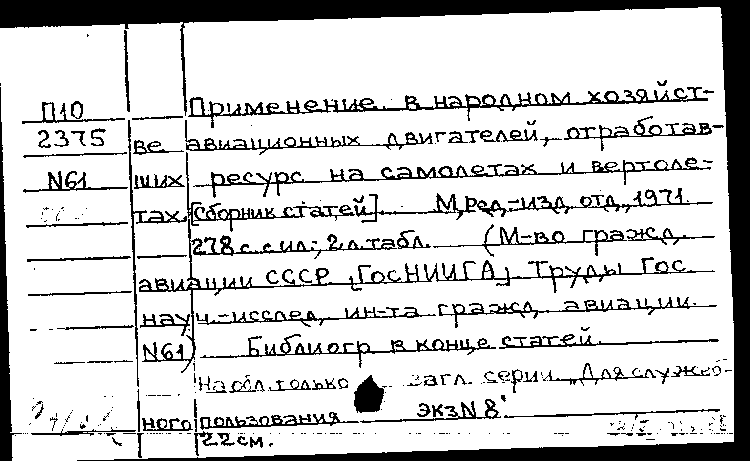 П10 Применение в народном хозяйст-
2375 ве авиационных двигателей, отработав-
N61 ших ресурс на самолетах и вертоле-
тах. [Сборник статей]. М, ред.-изд. отд., 1971.
278 с. с ил.; 2 л. табл. (М-во гражд.
авиации СССР. [ГосНИИГА]. Труды Гос.
науч.-исслед. ин-та гражд. авиации.
N61) Библиогр. в конце статей.
На обл. только загл. серии. "Для служеб-
ного пользования ЭКЗ N 8".
22 см.